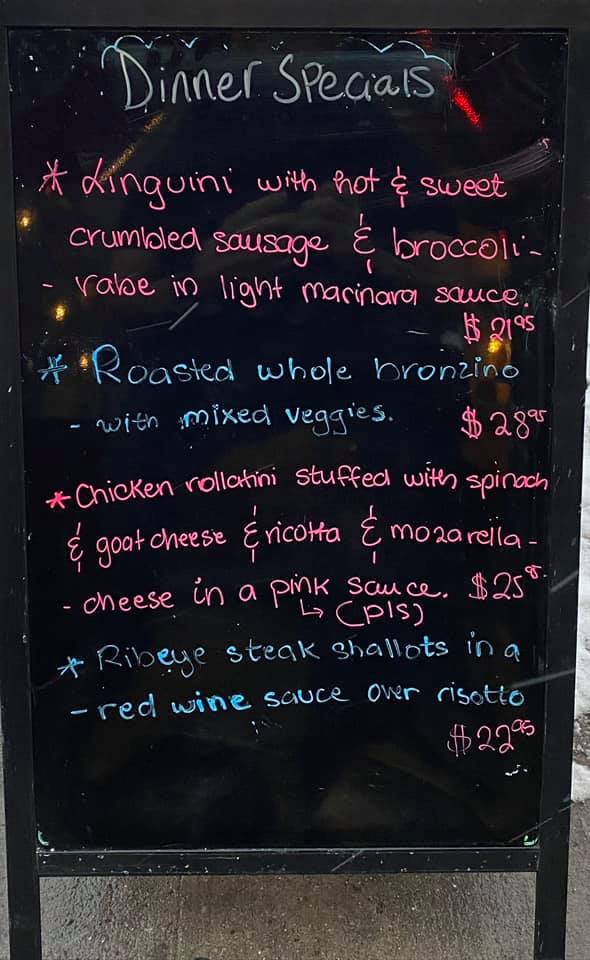 Dinner Specials
* Linguini with hot & sweet
crumbled sausage & broccoli -
- rabe in light marinara sauce.
$21.95
* Roasted whole bronzino
- with mixed veggies. $28.95
* Chicken rollatini stuffed with spinach
& goat cheese & ricotta & mozarella -
- cheese in a pink sauce. $25
↳ (P/S)
* Ribeye steak shallots in a
- red wine sauce over risotto
$22.95